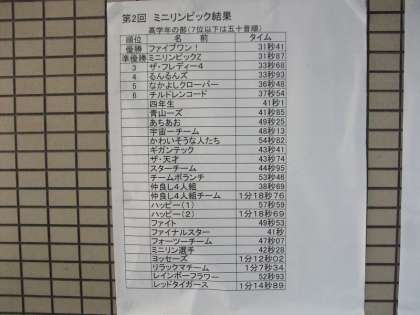 第2回 ミニリンピック結果
高学年の部(7位以下は五十音順)
順位 名 前 タイム
優勝 ファイブワン! 31秒41
準優勝 ミニリンピックZ 31秒85
3 ザ・フレディー4 33秒68
4 るんるんズ 33秒93
5 なかよしクローバー 36秒48
6 チルドレンコード 37秒54
四年生 41秒1
青山一ズ 41秒87
あちあお 49秒25
宇宙一チーム 48秒13
かわいそうな人たち 54秒82
ギガンテック 43秒41
ザ・天才 43秒74
スターチーム 44秒95
チームボランチ 53秒46
仲良し4人組 38秒69
仲良し4人組チーム 1分18秒76
ハッピー(1) 57秒59
ハッピー(2) 1分18秒69
ファイト 49秒53
ファイナルスター 41秒
フォーツーチーム 47秒07
ミニリン選手 42秒28
ヨッセーズ 1分12秒02
リラックマチーム 1分7秒34
レインボーフラワー 52秒93
レッドタイガース 1分14秒89